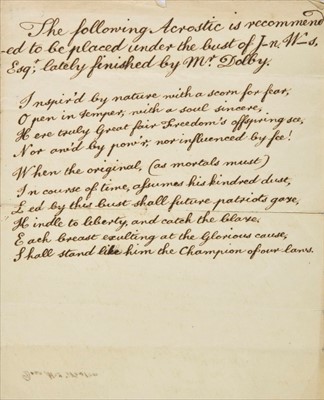 The following Acrostic is recommend
-ed to be placed under the bust of J-n. W-s,
Esqr. lately finished by Mr Dolby.
Inspir'd by nature with a scorn for fear,
Open in temper, with a soul sincere,
Here truly Great fair Freedom's offspring see,
Nor aw'd by pow'r, nor influenced by fee!
When the original, (as mortals must)
In course of time, assumes his kindred dust,
Led by this bust shall future patriots gaze,
Kindle to liberty, and catch the blaze,
Each breast exulting at the Glorious cause,
Shall stand like him the Champion of our laws.